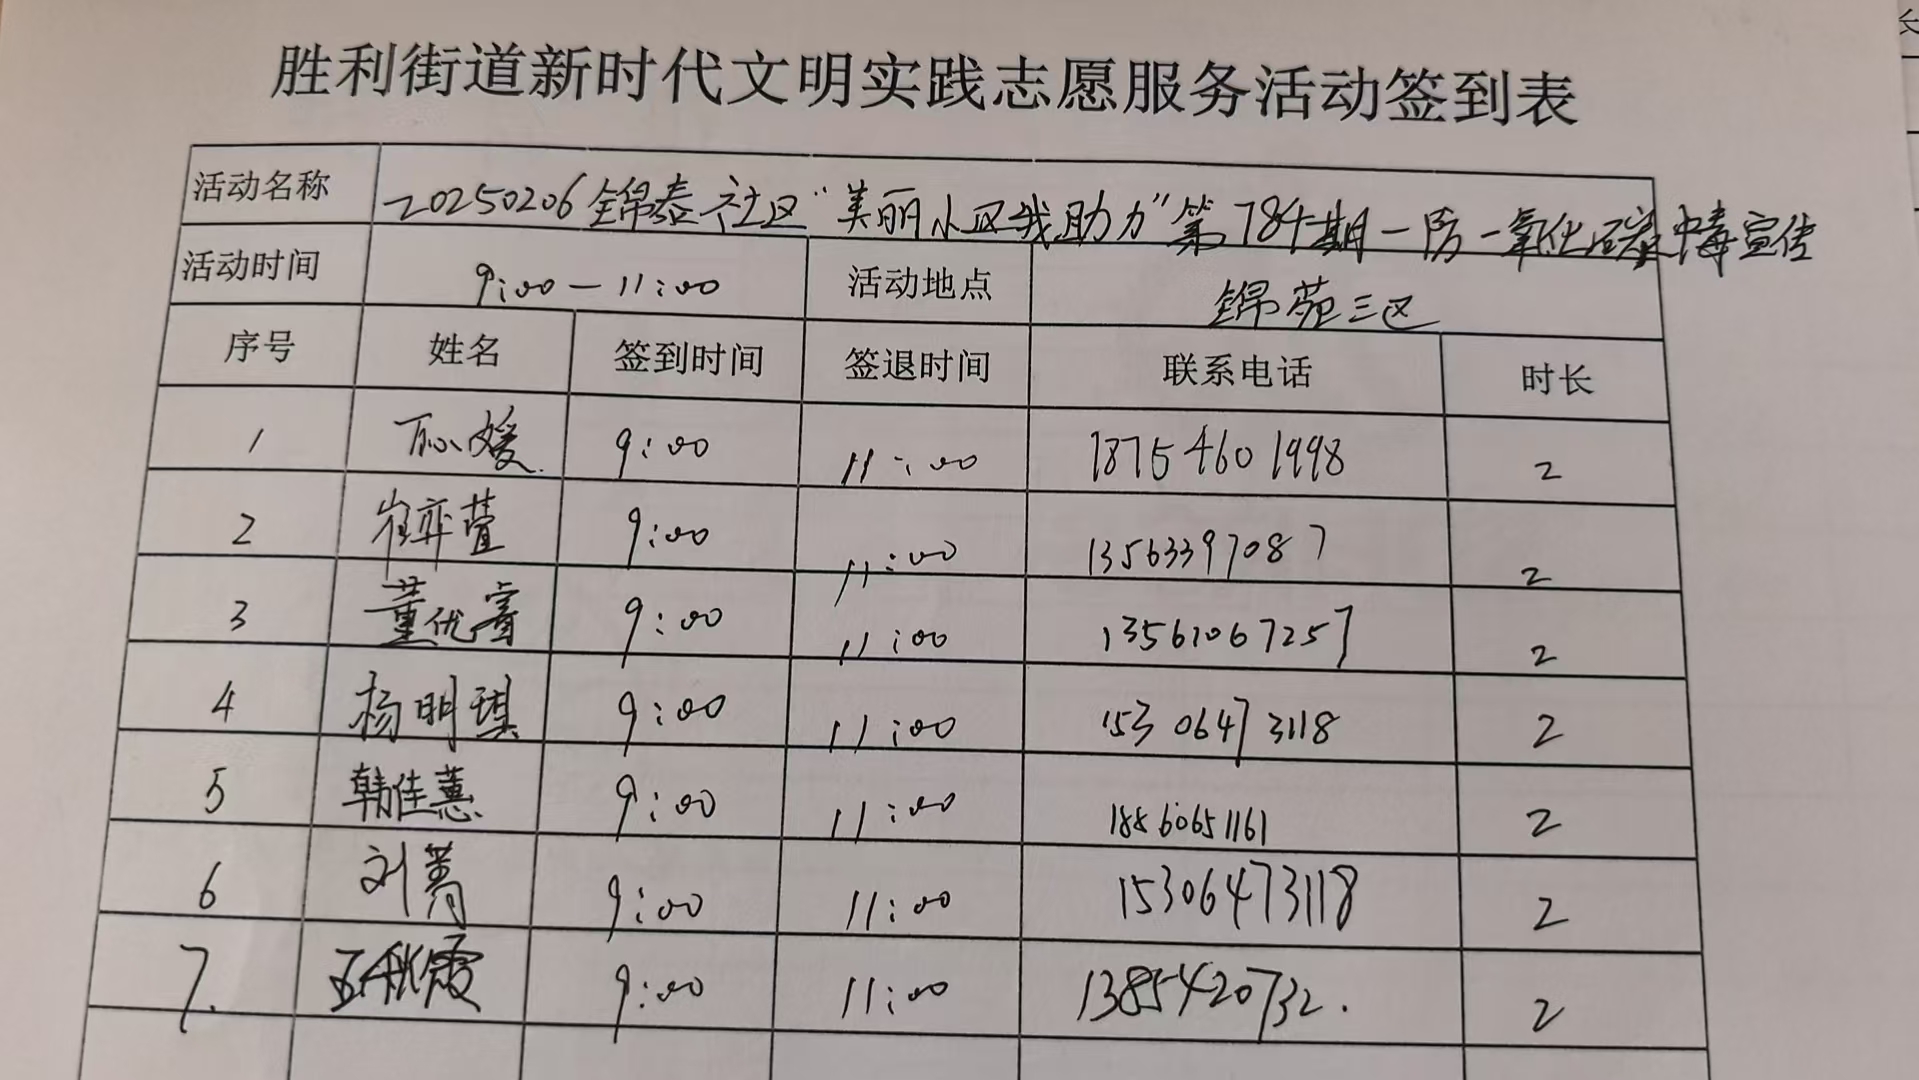 胜利街道新时代文明实践志愿服务活动签到表
活动名称 20250206锦泰社区“美丽小区我助力”第784期-防一氧化碳中毒宣传
活动时间 9:00-11:00 活动地点 锦苑三区
序号 姓名 签到时间 签退时间 联系电话 时长
1 9:00 11:00 18754601998 2
2 崔弈萱 9:00 11:00 13563397087 2
3 董优睿 9:00 11:00 13561067257 2
4 杨明琪 9:00 11:00 15306473118 2
5 韩佳蕙 9:00 11:00 18860651161 2
6 刘菁 9:00 11:00 15306473118 2
7. 王秋霞 9:00 11:00 1385420732. 2
长